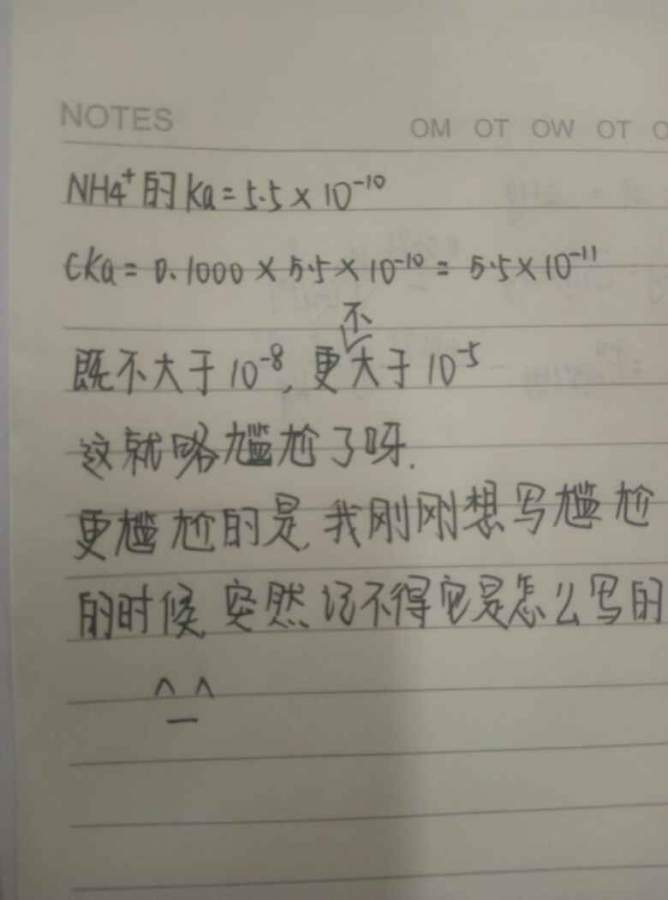 NOTES OM OT OW OT
NH4⁺的Ka=5.5×10⁻¹⁰
CKa=0.1000×5.5×10⁻¹⁰=5.5×10⁻¹¹
既不大于10⁻⁸,更不大于10⁻⁵
这就略尴尬了呀.
更尴尬的是,我刚刚想写尴尬
的时候,突然记不得它是怎么写的
^_^